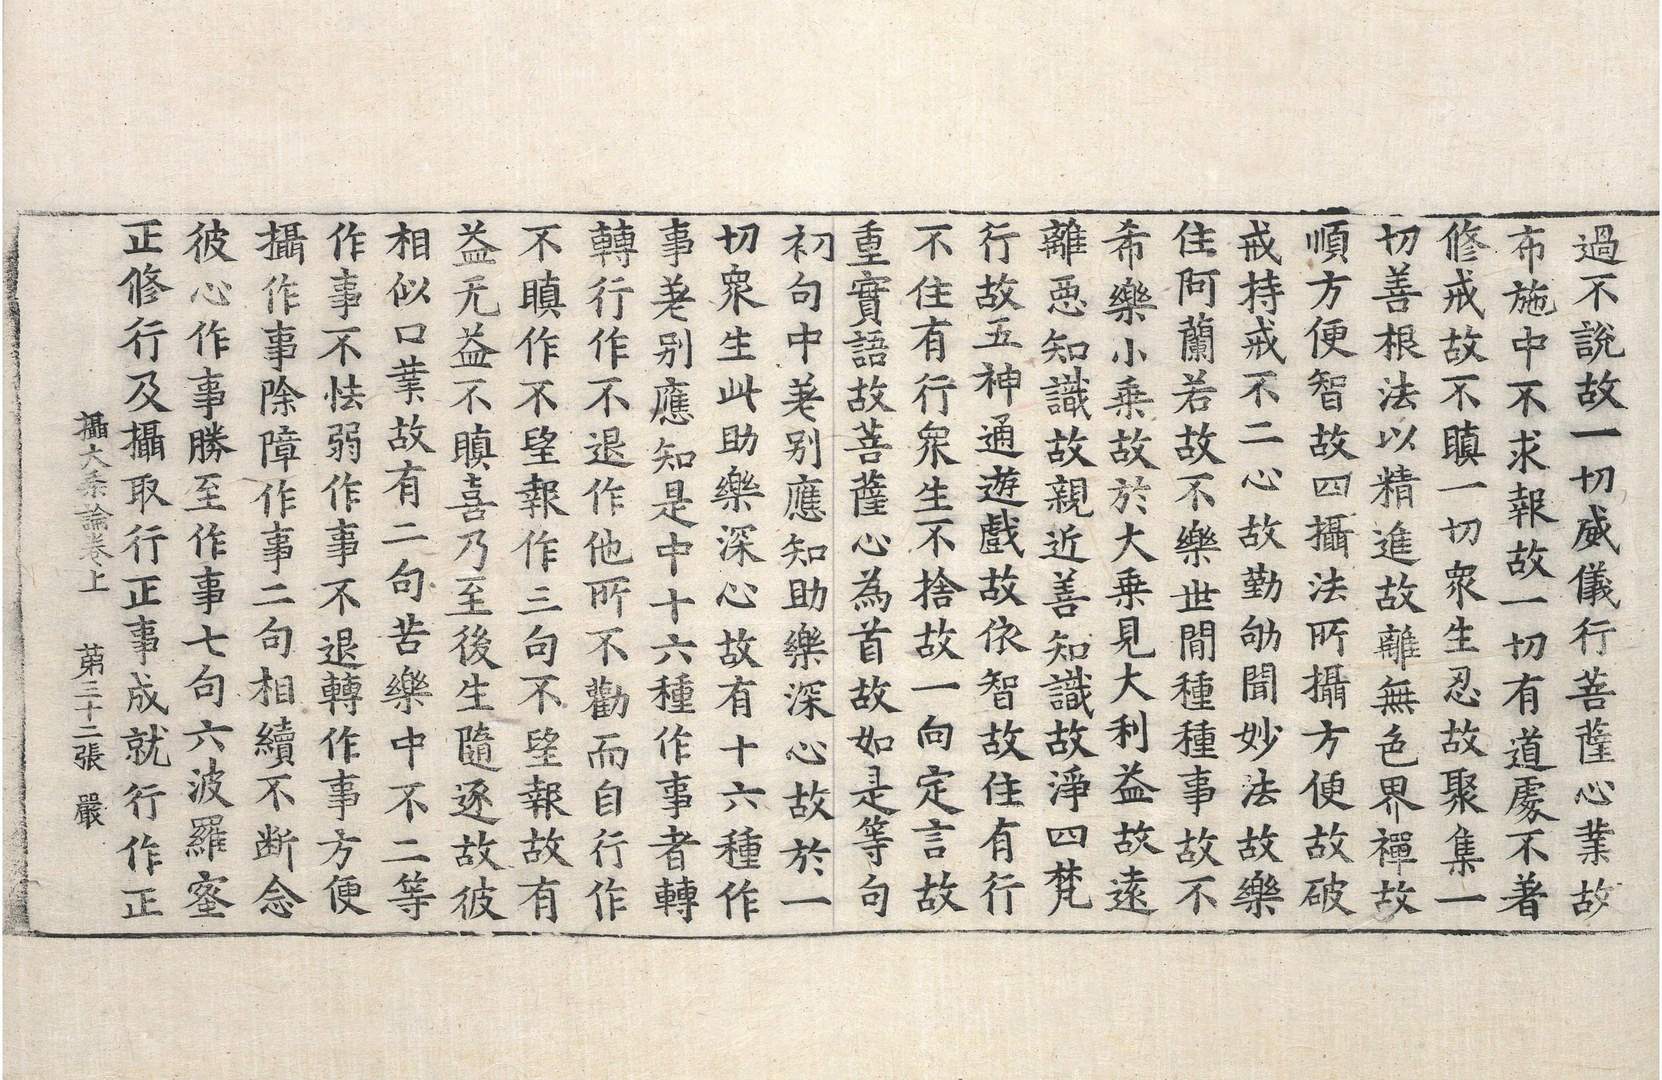 過不說故一切威儀行菩薩心業故
布施中不求報故一切有道處不著
修戒故不瞋一切衆生忍故聚集一
切善根法以精進故離無色界禪故
順方便智故四攝法所攝方便故破
戒持戒不二心故勤劬聞妙法故樂
住阿蘭若故不樂世間種種事故不
希樂小乗故於大乗見大利益故遠
離惡知識故親近善知識故淨四梵
行故五神通遊戲故依智故住有行
不住有行衆生不捨故一向定言故
重實語故菩薩心為首故如是等句
初句中差别應知助樂深心故於一
切衆生此助樂深心故有十六種作
事差别應知是中十六種作事者轉
轉行作不退作他所不勸而自行作
不瞋作不望報作三句不望報故有
益无益不瞋喜乃至後生隨逐故彼
相似口業故有二句苦樂中不二等
作事不怯弱作事不退轉作事方便
攝作事除障作事二句相續不断念
彼心作事勝至作事七句六波羅蜜
正修行及攝取行正事成就行作正
攝大乗論卷上 苐三十二張 嚴